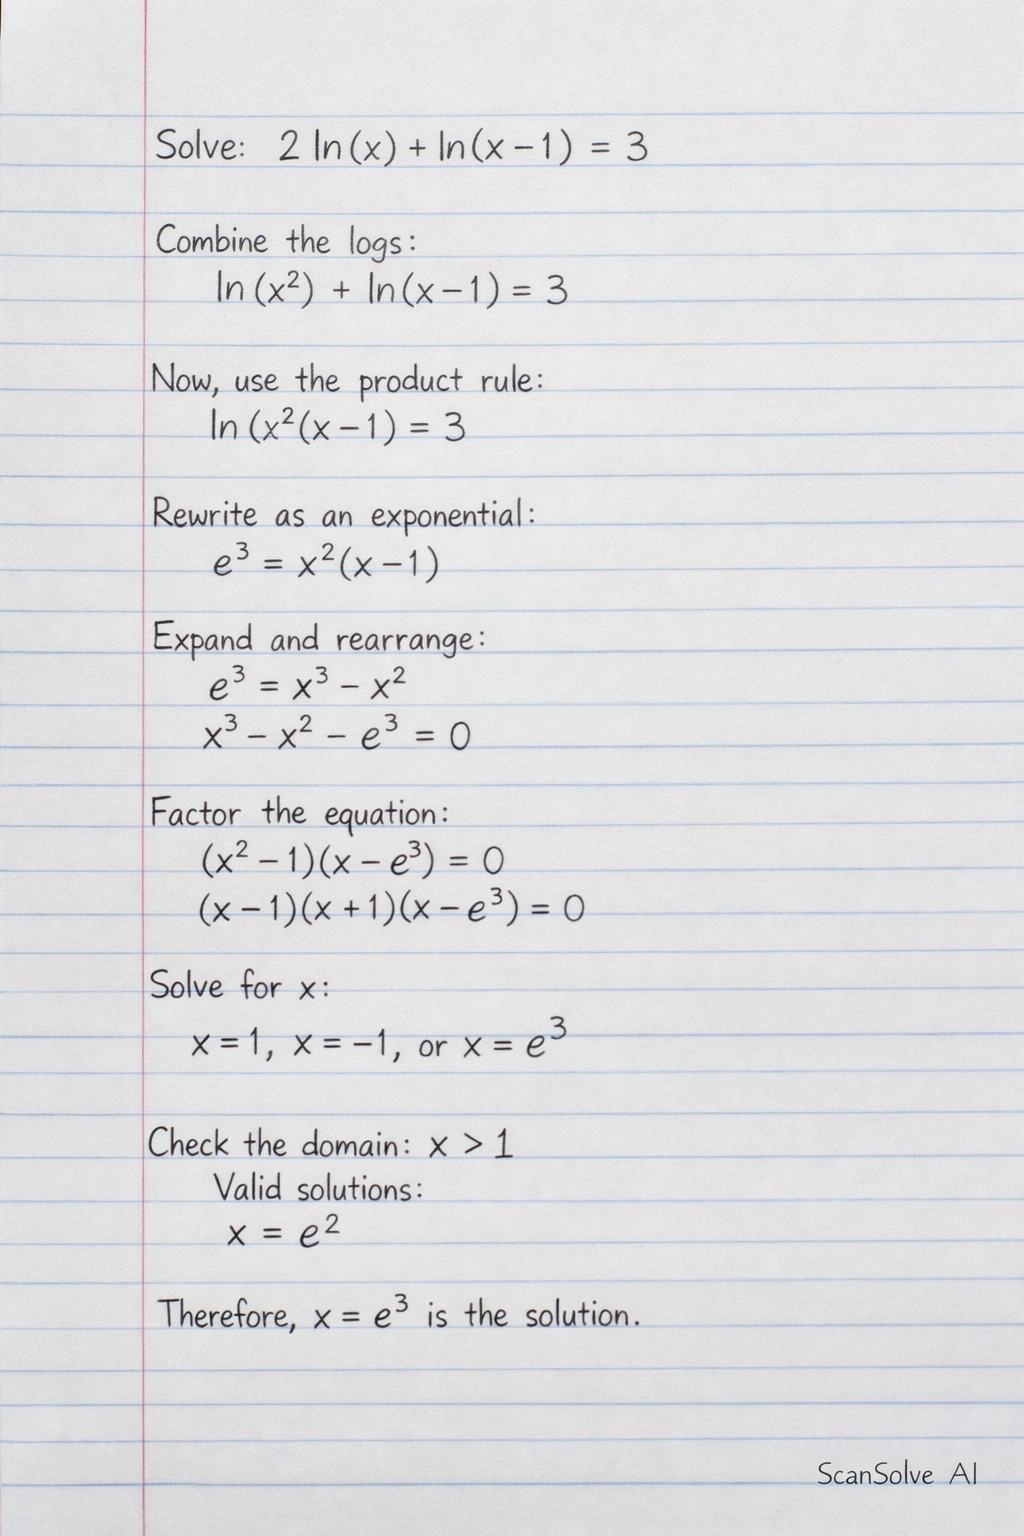 Solve: 2 ln(x) + ln(x - 1) = 3
Combine the logs:
ln(x²) + ln(x - 1) = 3
Now, use the product rule:
ln(x²(x - 1) = 3
Rewrite as an exponential:
e³ = x²(x - 1)
Expand and rearrange:
e³ = x³ - x²
x³ - x² - e³ = 0
Factor the equation:
(x² - 1)(x - e³) = 0
(x - 1)(x + 1)(x - e³) = 0
Solve for x:
x = 1, x = -1, or x = e³
Check the domain: x > 1
Valid solutions:
x = e²
Therefore, x = e³ is the solution.
ScanSolve AI